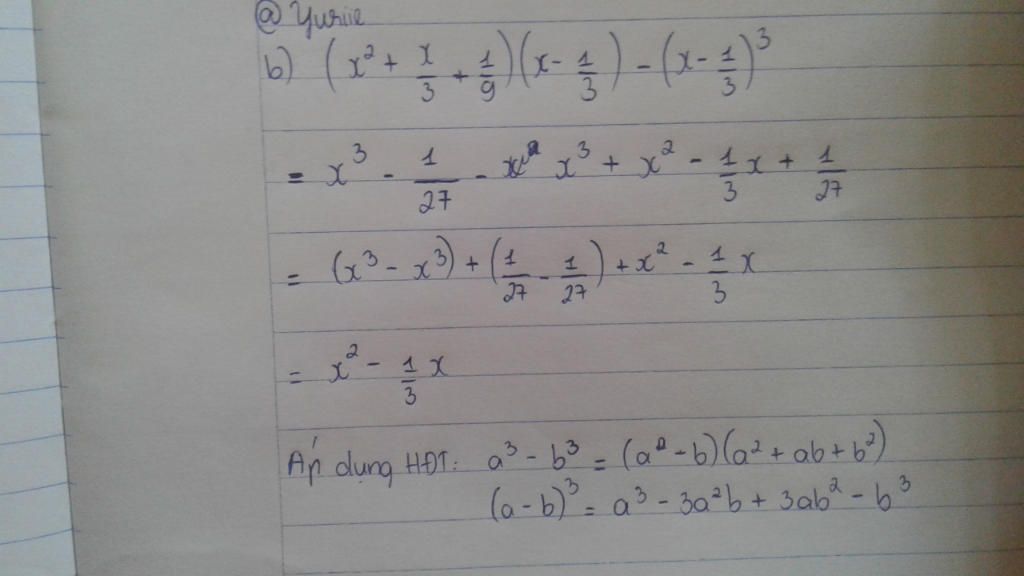 @ Yuriie
b) (x² + x/3 + 1/9)(x - 1/3) - (x - 1/3)³
= x³ - 1/27 - x³ + x² - 1/3 x + 1/27
= (x³ - x³) + (1/27 - 1/27) + x² - 1/3 x
= x² - 1/3 x
Áp dụng HĐT: a³ - b³ = (a² - b)(a² + ab + b²)
(a - b)³ = a³ - 3a²b + 3ab² - b³